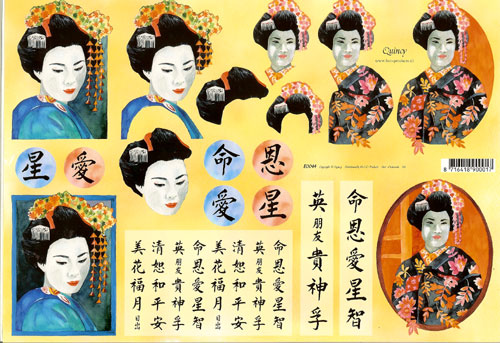 Quincy
星
愛
命
恩
愛
星
8 716418 900217
命恩愛星智
英朋友貴神孚
清恕和平安
美花福月日出
命恩愛星智
英朋友貴神孚
清恕和平安
美花福月日出
命恩愛星智
英朋友貴神孚